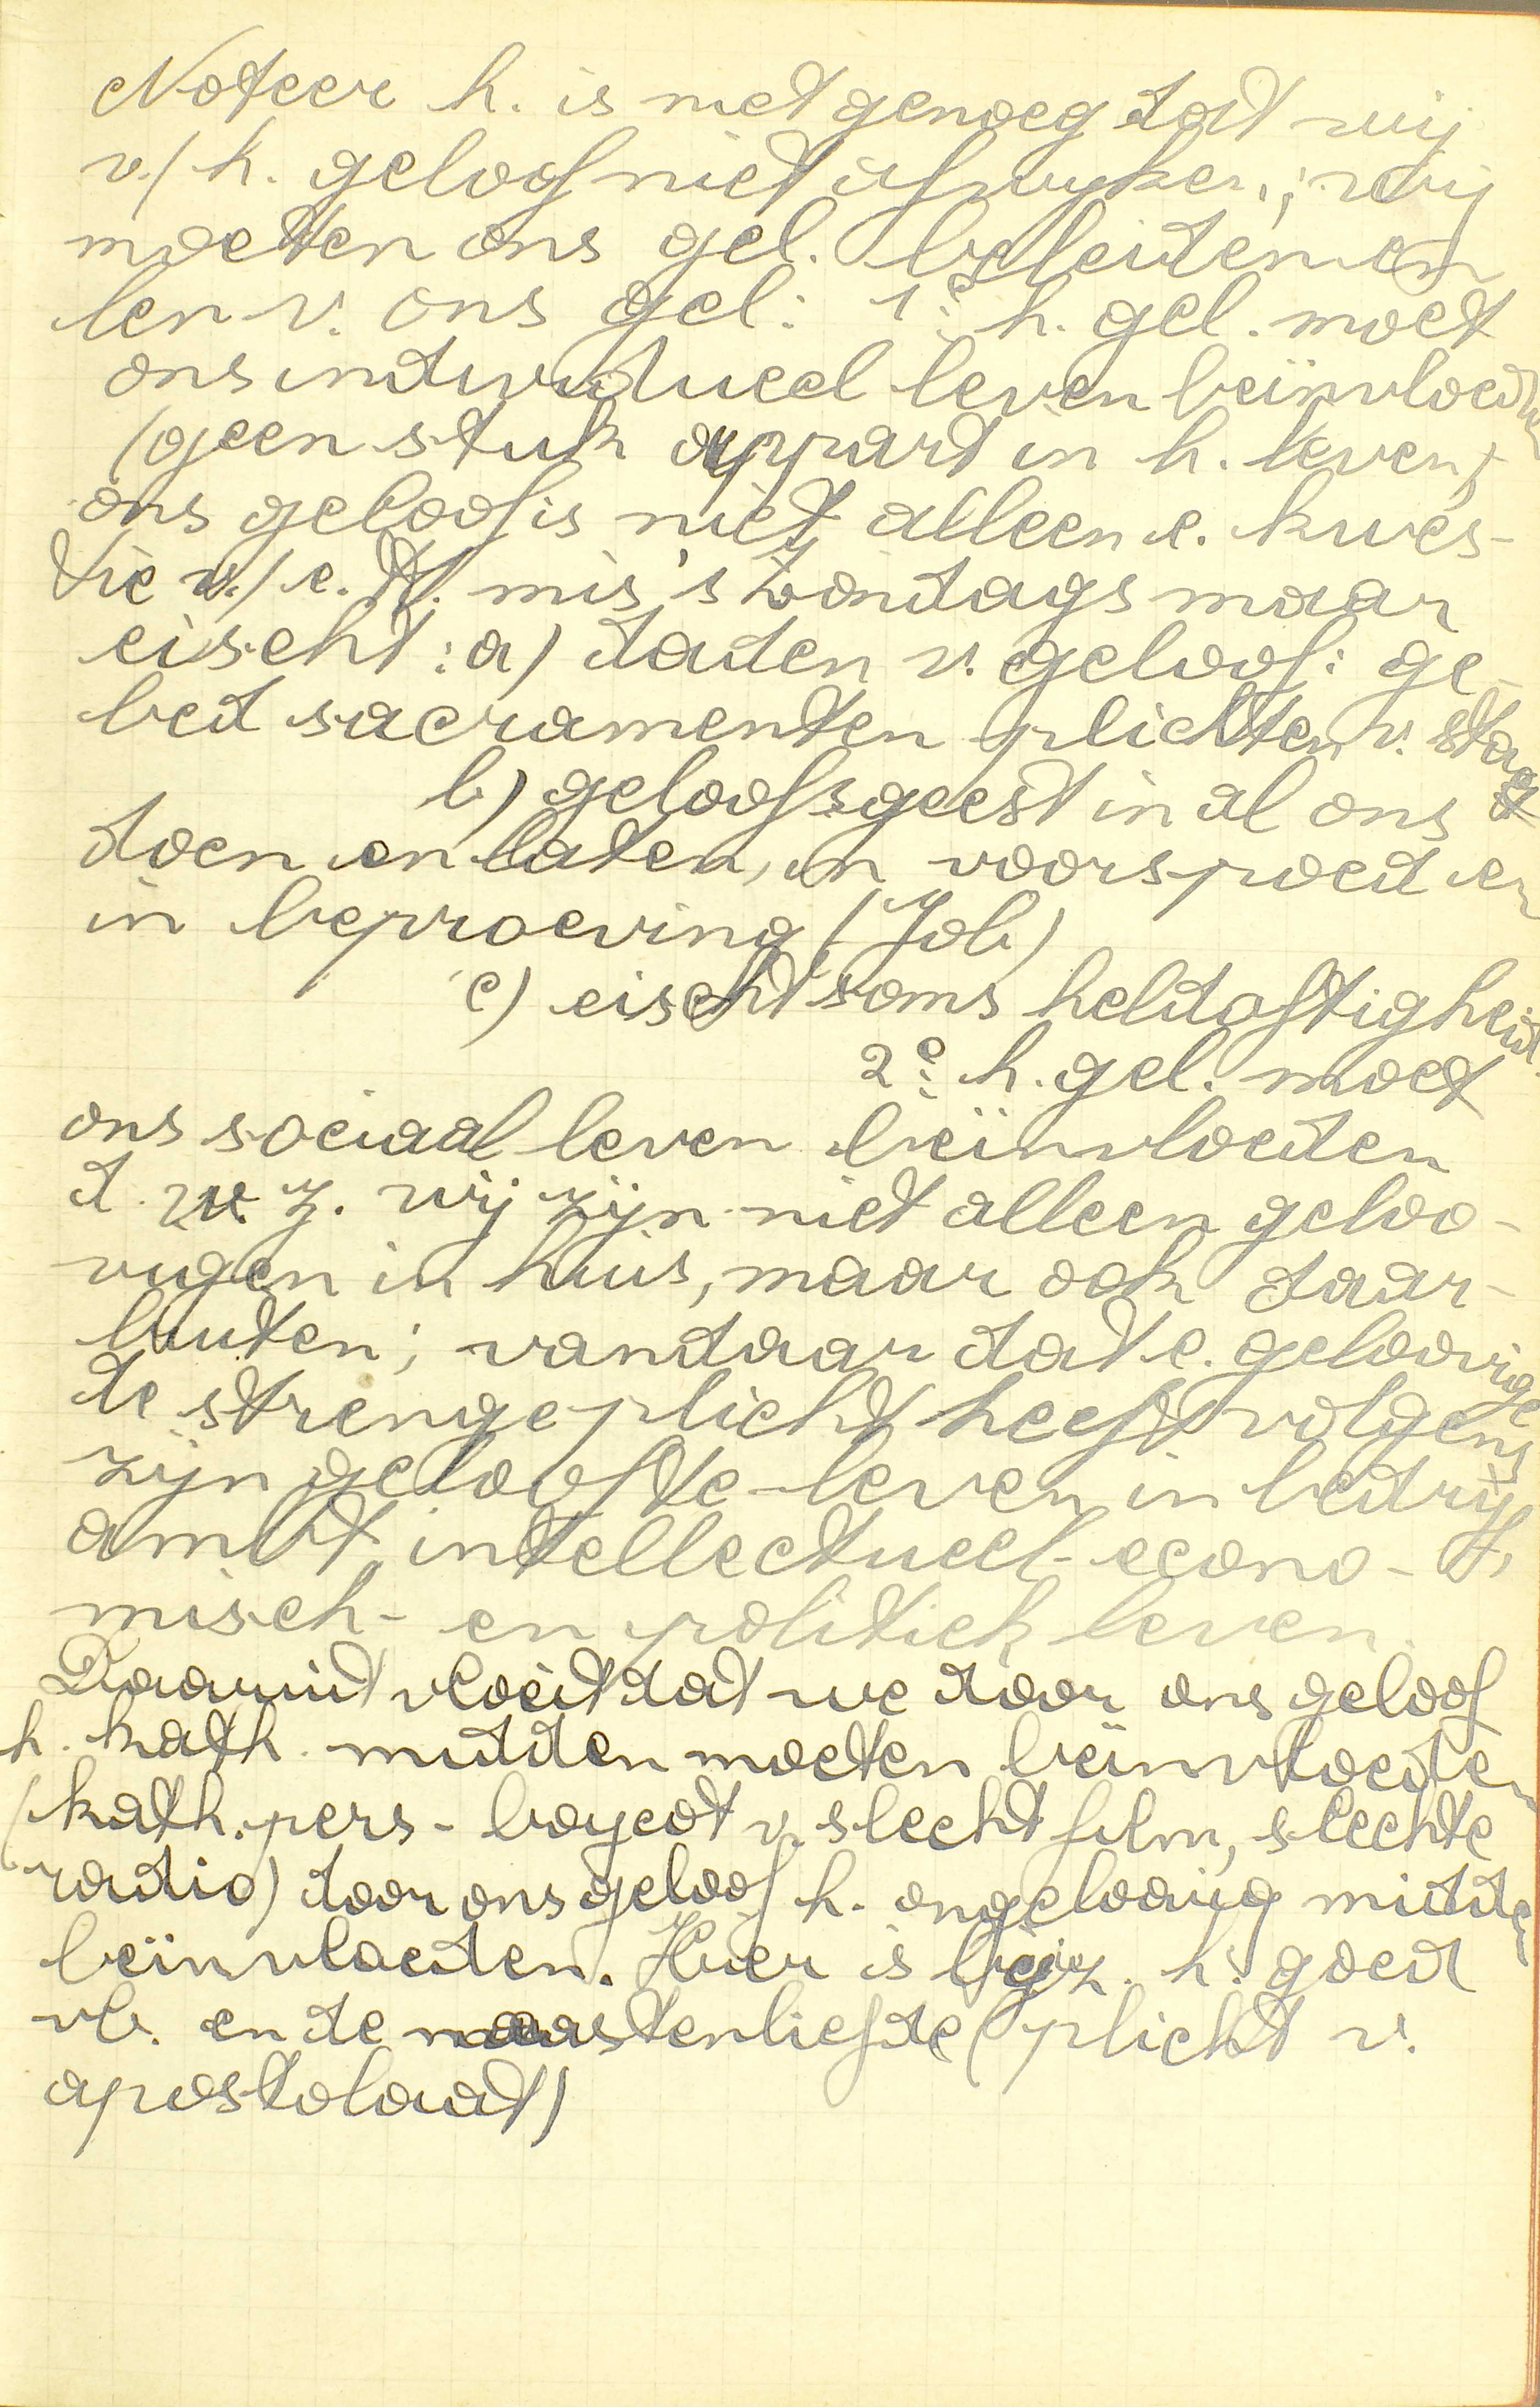 Noteer h. is niet genoeg dat wij
v./h. geloof niet afwyken; wij
moeten ons gel. beleiden en
len v. ons gel: 1e: h. gel. moet
ons individueel leven beïnvloeden
(geen stuk appart in h. leven)
ons geloof is niet alleen e. kwes-
tie v./e. H. mis 's zondags maar
eischt: a) daden v. geloof: ge-
bed sacramenten plichten v. staat
b) geloofsgeest in al ons
doen en laten, in voorspoed en
in beproeving (Job)
c) eischt soms heldaftigheid.
2e: h. gel. moet
ons sociaal leven beïnvloeden
d. w. z. wij zijn niet alleen geloo-
vigen in huis, maar ook daar-
buiten; vandaar dat e. geloovige
de strenge plicht heeft volgens
zijn geloof te leven in bedrijf,
ambt, intellectueel- econo-
misch- en politiek leven.
Daaruit vloeit dat we door ons geloof
h. kath. midden moeten beïnvloeden
(kath. pers - boycot v. slecht film, slechte
radio) door ons geloof h. ongeloovig midden
beïnvloeden. Hier is h. goed
vb. en de naastenliefde (plicht v.
apostolaat)